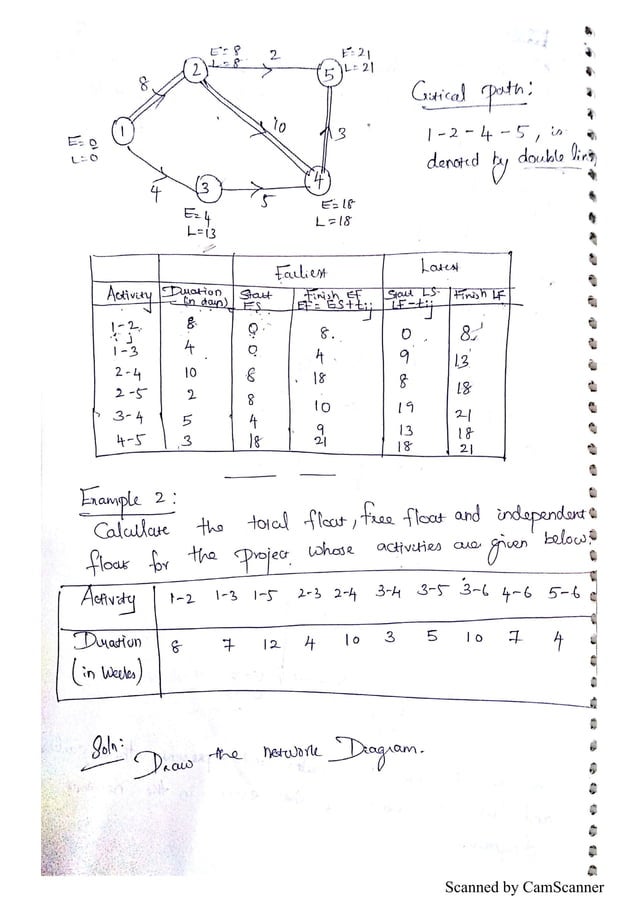 E=8
L=8
2
E=21
L=21
2
5
8
10
3
1
E=0
L=0
4
3
5
4
E=4
L=13
E=18
L=18
Critical path:
1-2-4-5, is
denoted by double line
Earliest Latest
Activity Duration (in days) Start ES Finish EF EF=ES+tij Start LS LF-tij Finish LF
1-2 8 0 8 0 8
1-3 4 0 4 9 13
2-4 10 8 18 8 18
2-5 2 8 10 19 21
3-4 5 4 9 13 18
4-5 3 18 21 18 21
Example 2:
Calculate the total float, free float and independent
float for the project whose activities are given below:
Activity 1-2 1-3 1-5 2-3 2-4 3-4 3-5 3-6 4-6 5-6
Duration 8 7 12 4 10 3 5 10 7 4
(in weeks)
Soln:
Draw the network Diagram.
Scanned by CamScanner